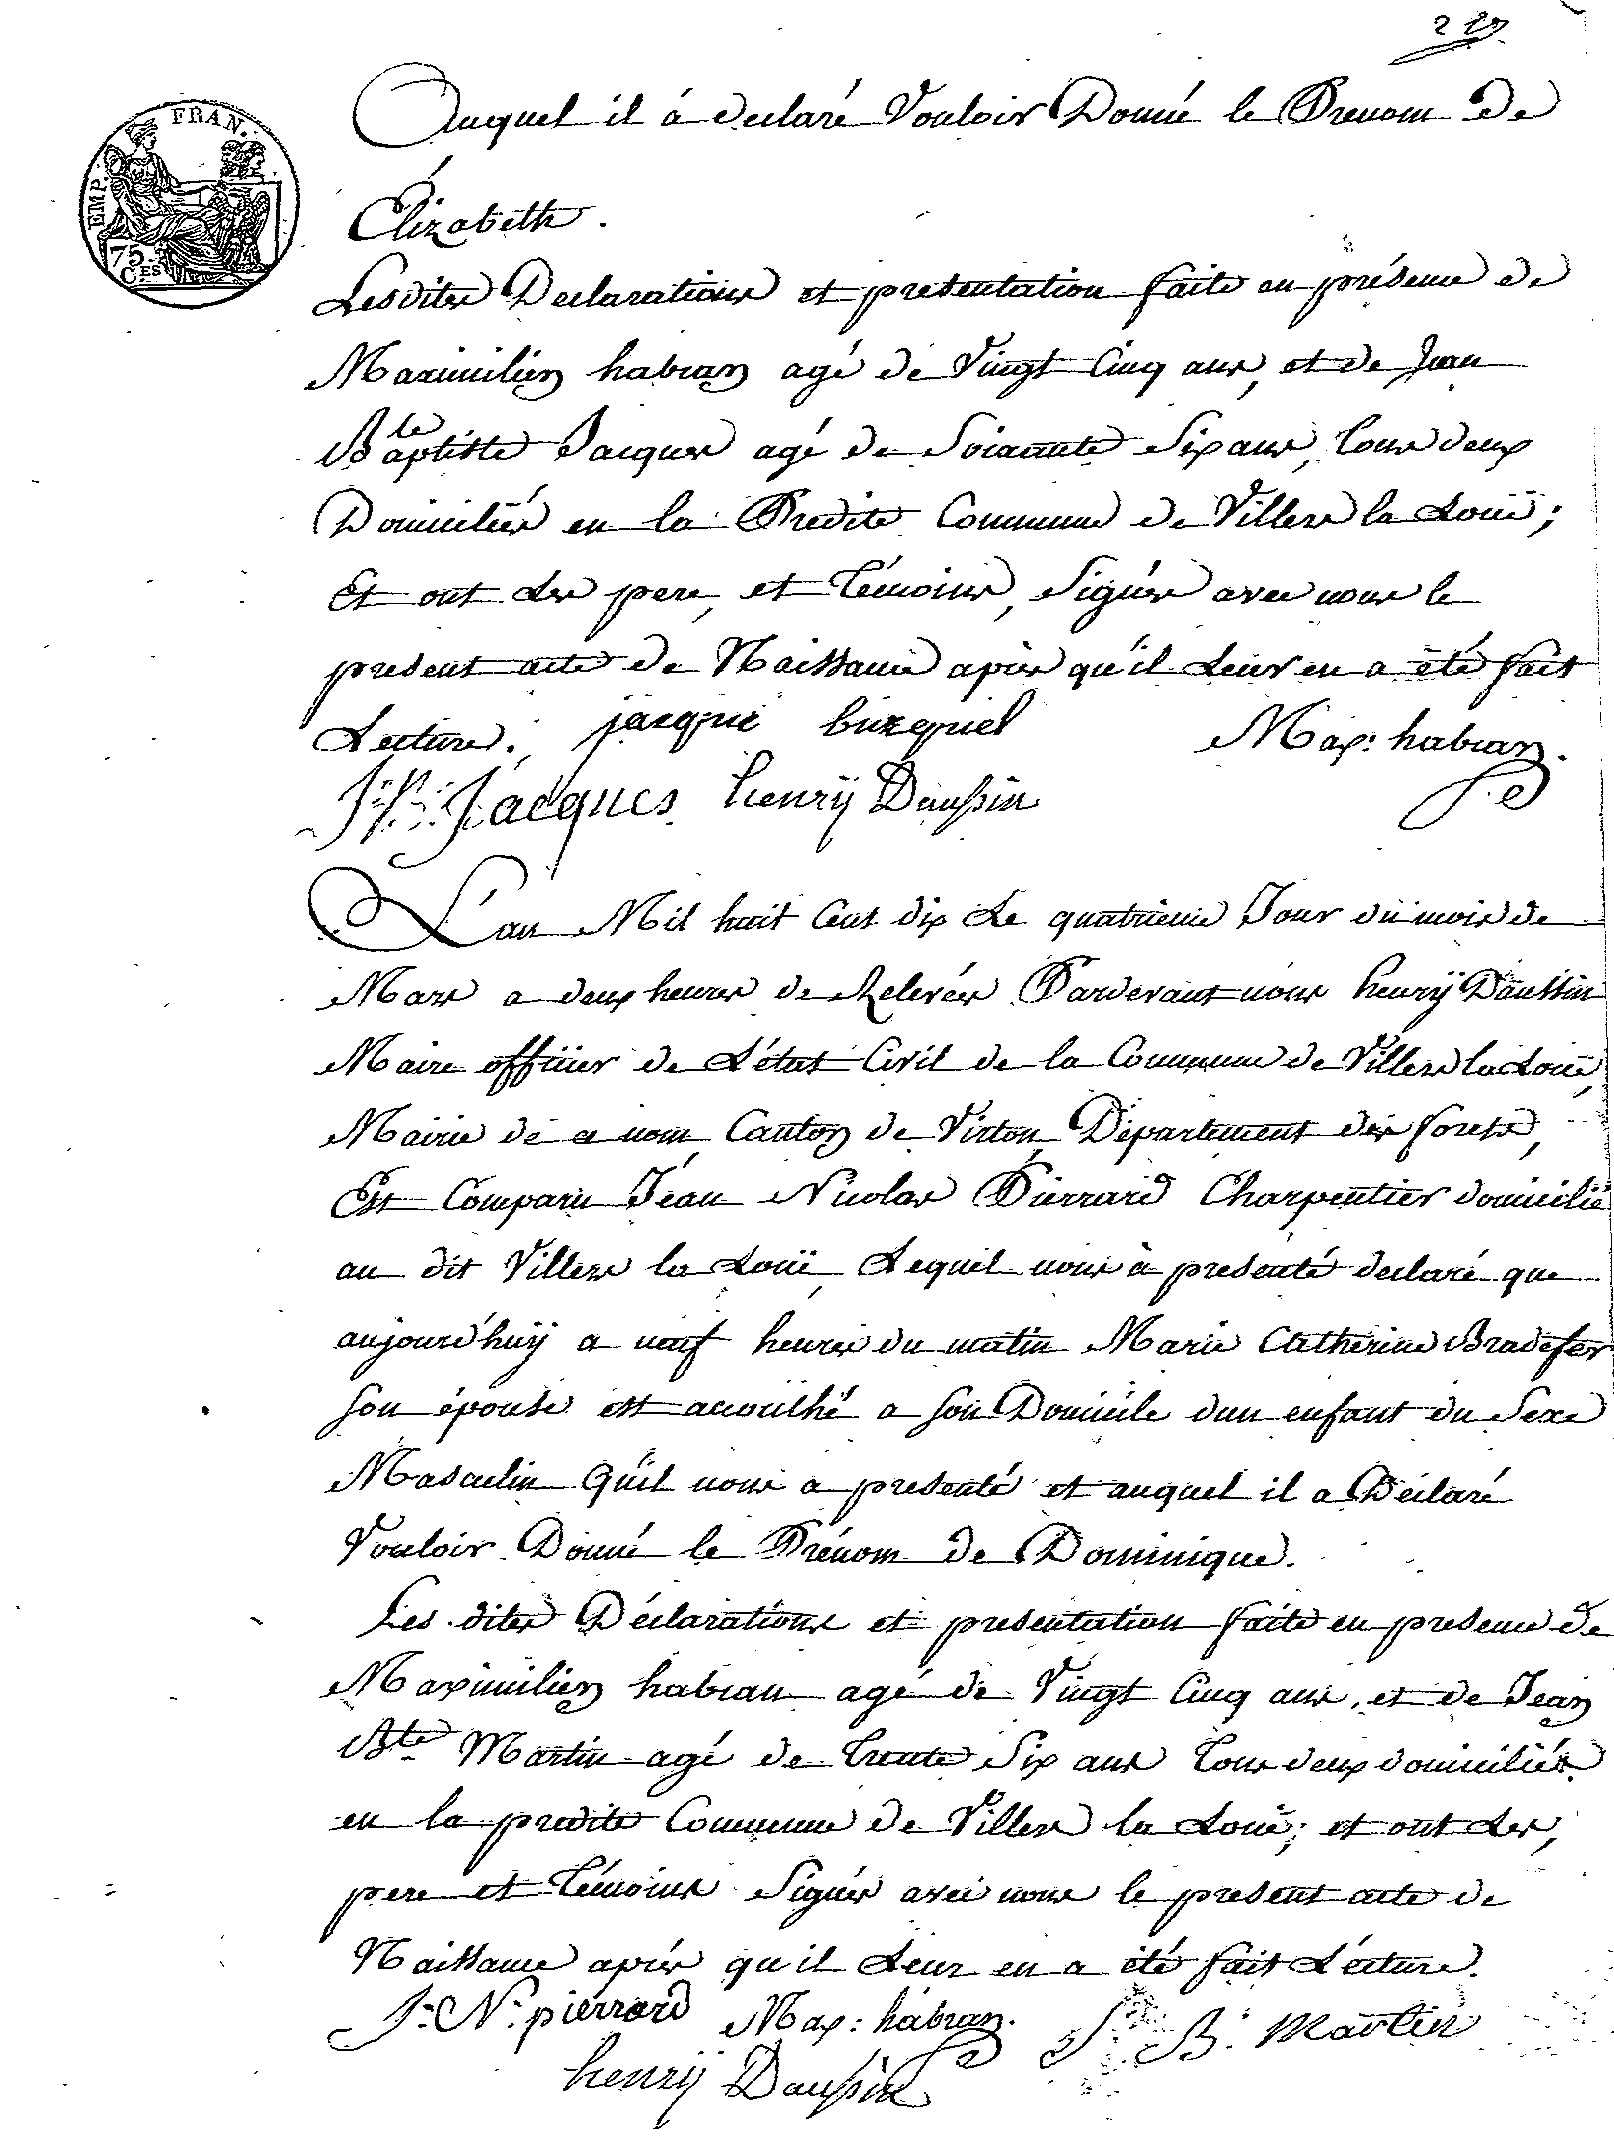 EMP. FRAN.
75
CES
Auquel il á declaré Vouloir Donné le Prenom de
Élizabeth.
Lesdites Declarations et presentation faite en présence de
Maximilien habran agé de Vingt Cinq ans, et de Jean
Bte aptiste Jacques agé de Soixante Six ans, tous deux
Domiciliés en la Predite Commune de Villers la Loüe;
Et ont les pere, et témoins, Signés avec nous le
present acte de Naissance après qu'il leur en a été fait
Lecture. jacque bizequiel Max: habran.
J: B: Jacques henrÿ Daussin
L'an Mil huit Cent dix le quatrieme Jour du mois de
Mars a deux heures de Relevées Pardevant nous henrÿ Daussin
Maire officier de L'état Civil de la Commune de Villers la Loüe,
Mairie de ce nom, Canton de Virton, Département des forets,
Est Comparu Jéan Nicolas Piérrard Charpentier domicilié
au dit Villers la Loüe, Lequel nous à presenté declaré que
aujourd'huÿ a neuf heures du matin Marie Catherine Bradefer
son épouse est accouchée a son Domicile d'un enfant du Sexe
Masculin Qu'il nous a presenté et auquel il a Déclaré
Vouloir Donné le Prénom de Dominique.
Les dites Déclarations et presentation faite en presence de
Maximilien habran agé de Vingt Cinq ans, et de Jean
Bte Martin agé de trente Six ans tous deux domiciliés
en la predite Commune de Villers la Loüe; et ont les,
pere et témoins Signés avec nous le present acte de
Naissance après qu'il leur en a été fait Lécture.
J: N: piérrard Max: habran. J B: Martin
henrÿ Daussin